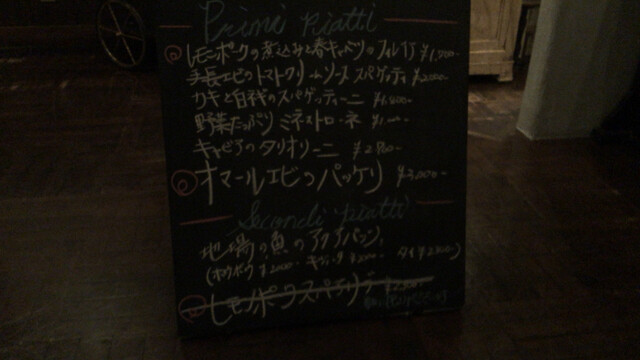 Primi Piatti
レモンポークの煮込みと春キャベツの ¥1,900-
手長エビのトマトクリームソース スパゲッティ ¥2000-
カキと白ネギのスパゲッティーニ ¥1,800-
野菜たっぷり ミネストローネ
キャビアのタリオリーニ ¥2,800-
オマールエビのパッケリ ¥3,000-
Secondi piatti
地場の魚のアクアパッツァ
(ホウボウ ¥2000-
レモンポーク